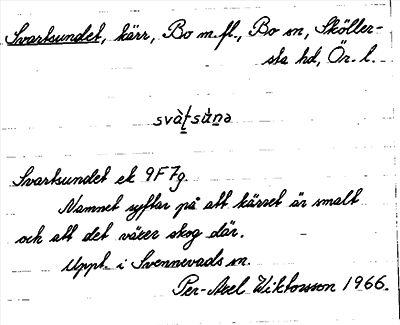 Svartsundet, kärr, Bo m.fl., Bo sn, Sköller-
sta hd, Ör. l.
svàt̠su̇̀n̠ə
Svartsundet ek 9F7g.
Namnet syftar på att kärret är smalt
och att det växer skog där.
Uppt. i Svennevads sn.
Per-Axel Wiktorsson 1966.